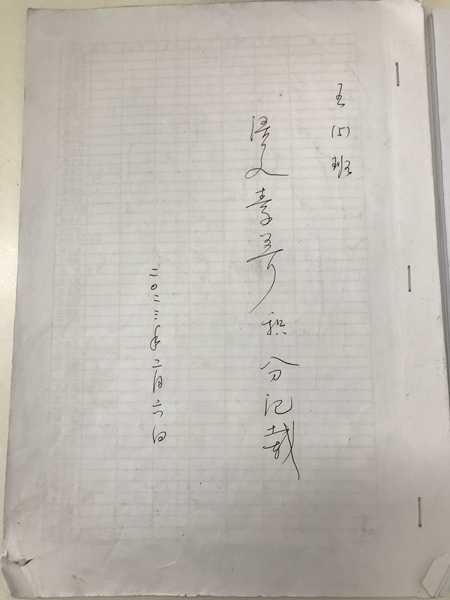 五(5)班
语文素养积分记载
二〇二三年二月六日